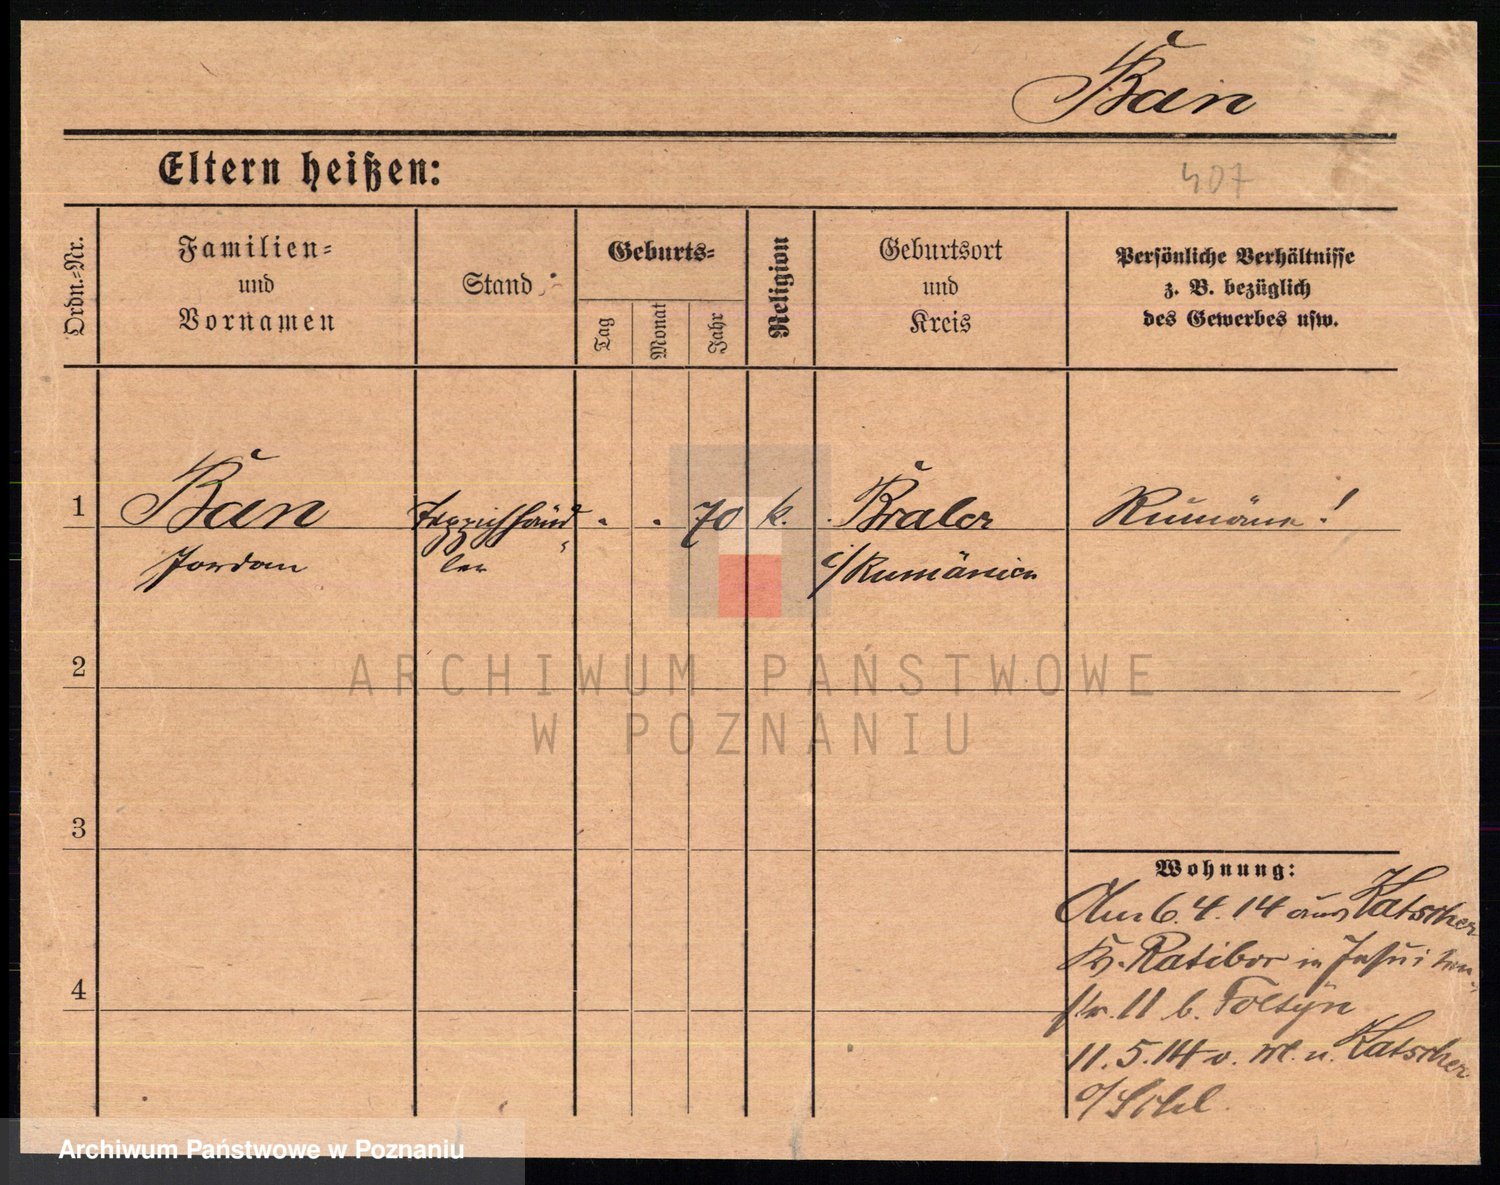 Ban
Eltern heißen:
407
Ordn.-Nr.
Familien-
und
Vornamen
Stand
Geburts-
Tag
Monat
Jahr
Religion
Geburtsort
und
Kreis
Persönliche Verhältnisse
z. B. bezüglich
des Gewerbes usw.
1
Ban
Teppichhänd-
. . 70
k.
Braler
Rumäne!
Jordan
ler
i/Rumänien
2
ARCHIWUM PAŃSTWOWE
W POZNANIU
3
Wohnung:
Am 6.4.14 aus Katscher
Kr. Ratibor in Jesuiten-
str. 11 b. Foltyn
4
11.5.14 v. M. n. Katscher
o/Schl.
Archiwum Państwowe w Poznaniu